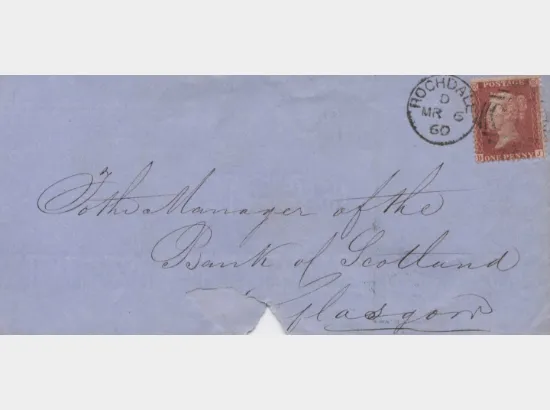 ROCHDALE
D
MR 6
60
POSTAGE
ONE PENNY
To the Manager of the
Bank of Scotland
Glasgow